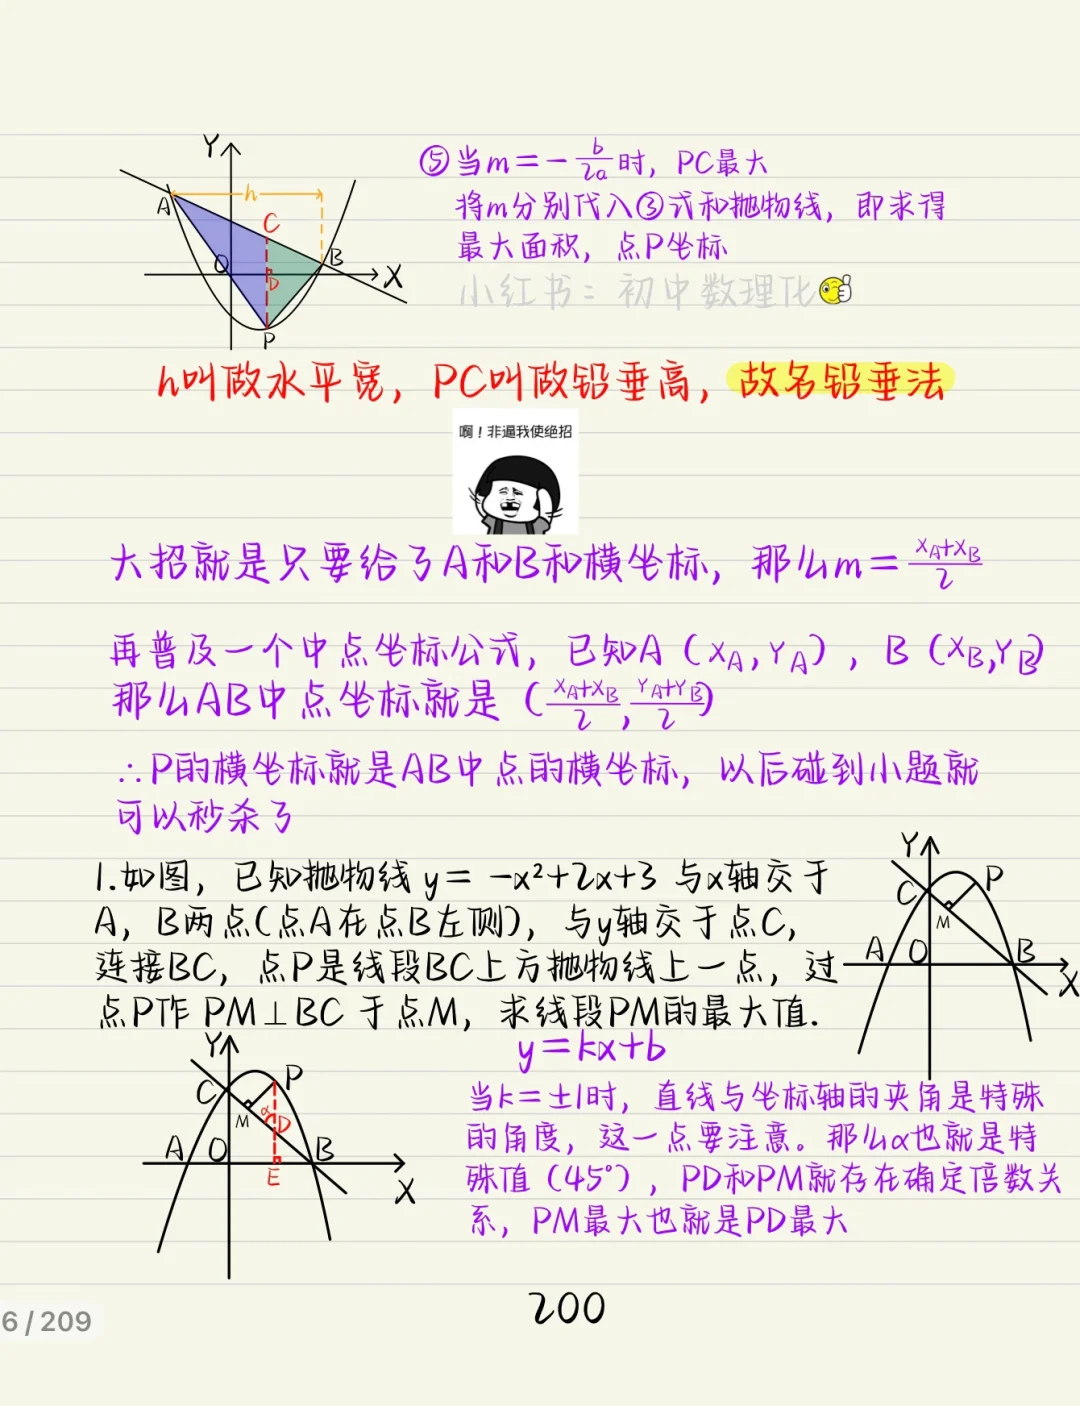 ⑤当m=-b/2a时，PC最大
将m分别代入③式和抛物线，即求得
最大面积，点P坐标
小红书：初中数理化
Y
A
h
C
O
D
B
X
P
h叫做水平宽，PC叫做铅垂高，故名铅垂法
啊！非逼我使绝招
大招就是只要给了A和B和横坐标，那么m=(xA+xB)/2
再普及一个中点坐标公式，已知A（xA,YA），B（xB,YB）
那么AB中点坐标就是（(xA+xB)/2,(YA+YB)/2）
∴P的横坐标就是AB中点的横坐标，以后碰到小题就
可以秒杀了
1.如图，已知抛物线y= -x²+2x+3 与x轴交于
A，B两点(点A在点B左侧)，与y轴交于点C，
连接BC，点P是线段BC上方抛物线上一点，过
点P作 PM⊥BC 于点M，求线段PM的最大值.
Y
C
P
M
A
O
B
X
Y
C
P
M
α
D
A
O
B
E
X
y=kx+b
当k=±1时，直线与坐标轴的夹角是特殊
的角度，这一点要注意。那么α也就是特
殊值（45°），PD和PM就存在确定倍数关
系，PM最大也就是PD最大
200
6/209